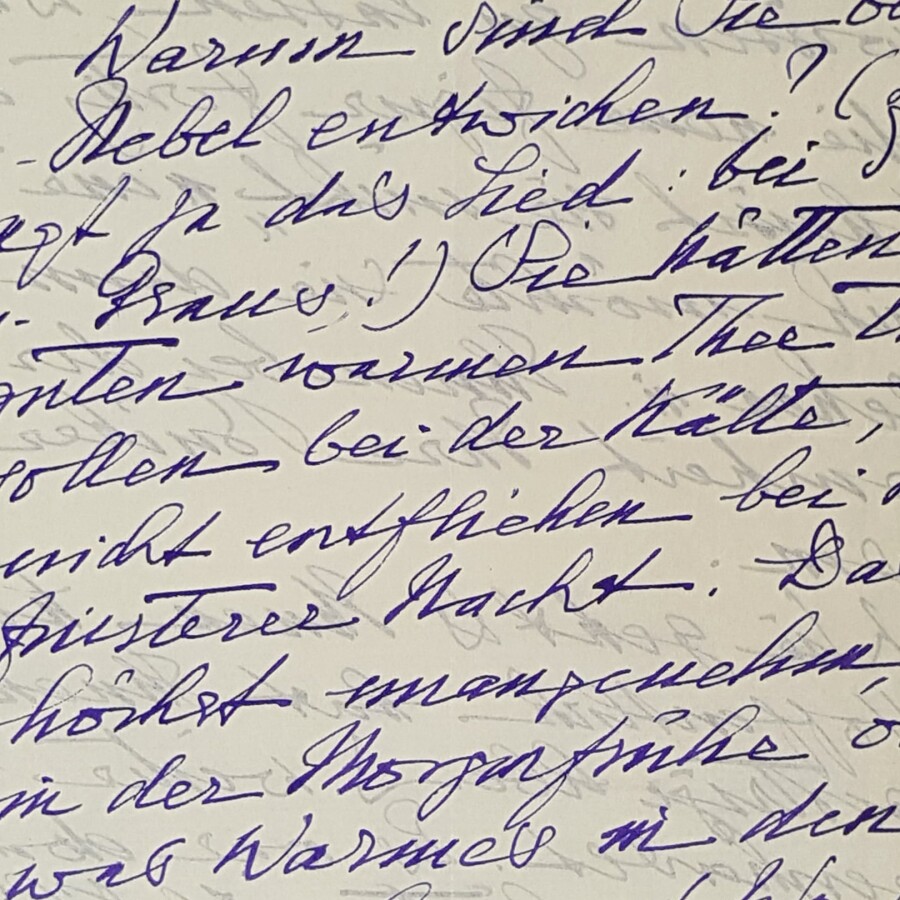 Warum sind Sie
Nebel entwichen? (
ja das Lied: bei
Graus!) Sie hätten
warmen Thee
sollen bei der Kälte,
nicht entfliehen bei
finsterer Nacht. Da
höchst unangenehm,
in der Morgenfrühe
was Warmes in den